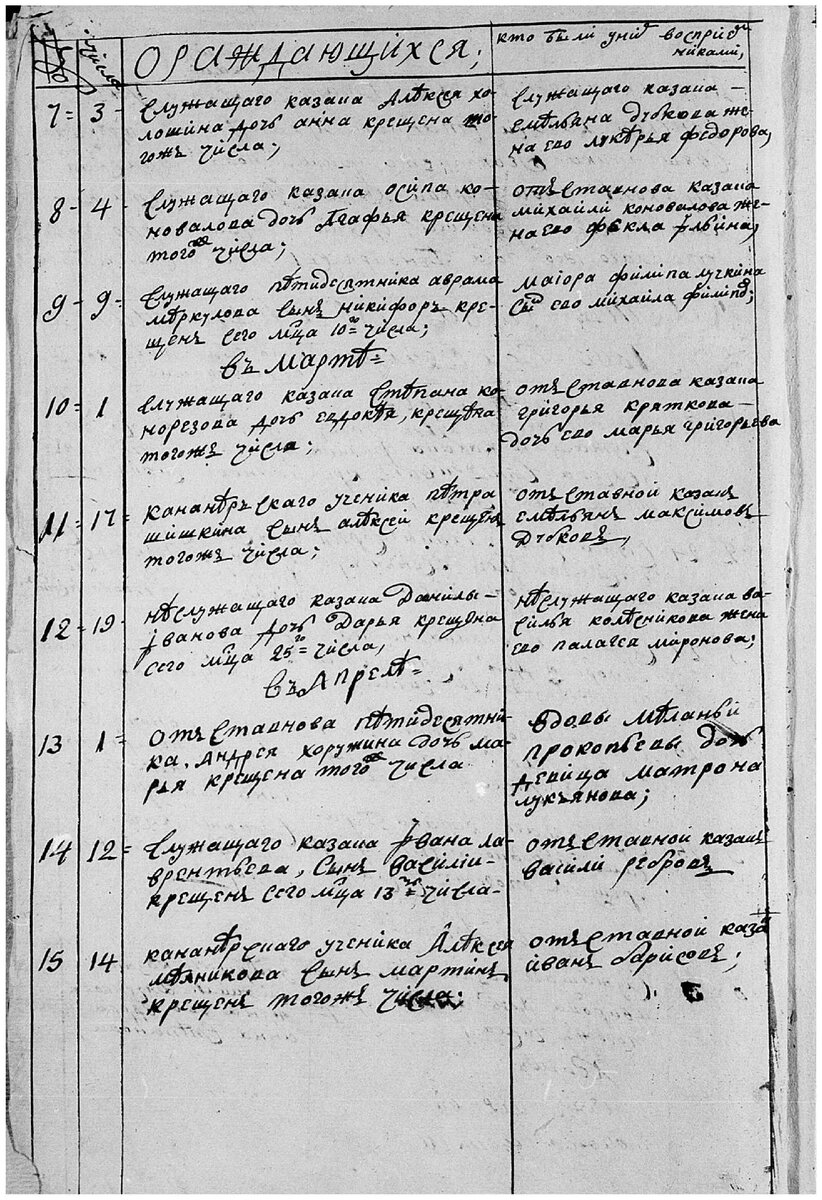 число
О РАЖДАЮЩИХСЯ;
кто были у них восприем
никами;
7 = 3 -
служащаго казака Алѣксея хо-
лошина дочь анна крещена то-
гожъ числа;
служащаго казака -
емѣльяна дубкова же-
на ево лукѣрья федорова;
8 - 4 -
служащаго казака осипа ко-
новалова дочь Агафья крещена
тогожъ числа;
отъставнова казака
михаилы коновалова же-
на ево фѣкла ильина;
9 - 9 =
служащаго пѣтидесятника аврама
мѣркулова сынъ никифоръ кре-
щенъ сего мца 10го числа;
маиора филипа лучкина
сынъ ево михаила филипо;
въ Мартѣ =
10 = 1
служащаго казака стѣпана ко-
норезова дочь евдокѣя, крещѣна
тогожъ числа;
отъставнова казака
григорья краткова -
дочь ево марья григорьева
11 = 17 =
кананѣрскаго ученика пѣтра
шишкина сынъ алѣксей крещенъ
тогожъ числа;
отъставной казакъ
емѣльянъ максимовъ
дубковъ,
12 = 19 =
нѣслужащаго казака Данилы -
иванова дочь Дарья крещѣна
сего мца 25го числа,
нѣслужащаго казака ва-
силья колѣсникова жена
ево палагея миронова;
въ Апрелѣ =
13 1 =
отъставнова пѣтидесятни-
ка. Андрея хоружина дочь ма-
рья крещена тогожъ числа
вдовы мѣланьи
прокопьевы дочь
девица матрона
лукьянова;
14 12 =
служащаго казака ивана ла-
врентьева, сынъ василии-
крещенъ сего мца 13го числа-
отъставной казакъ
василй ребровъ
15 14
кананѣрскаго ученика Алѣксея
мѣлникова сынъ мартинъ
крещенъ тогожъ числа;
отъставной казакъ
иванъ борисовъ;